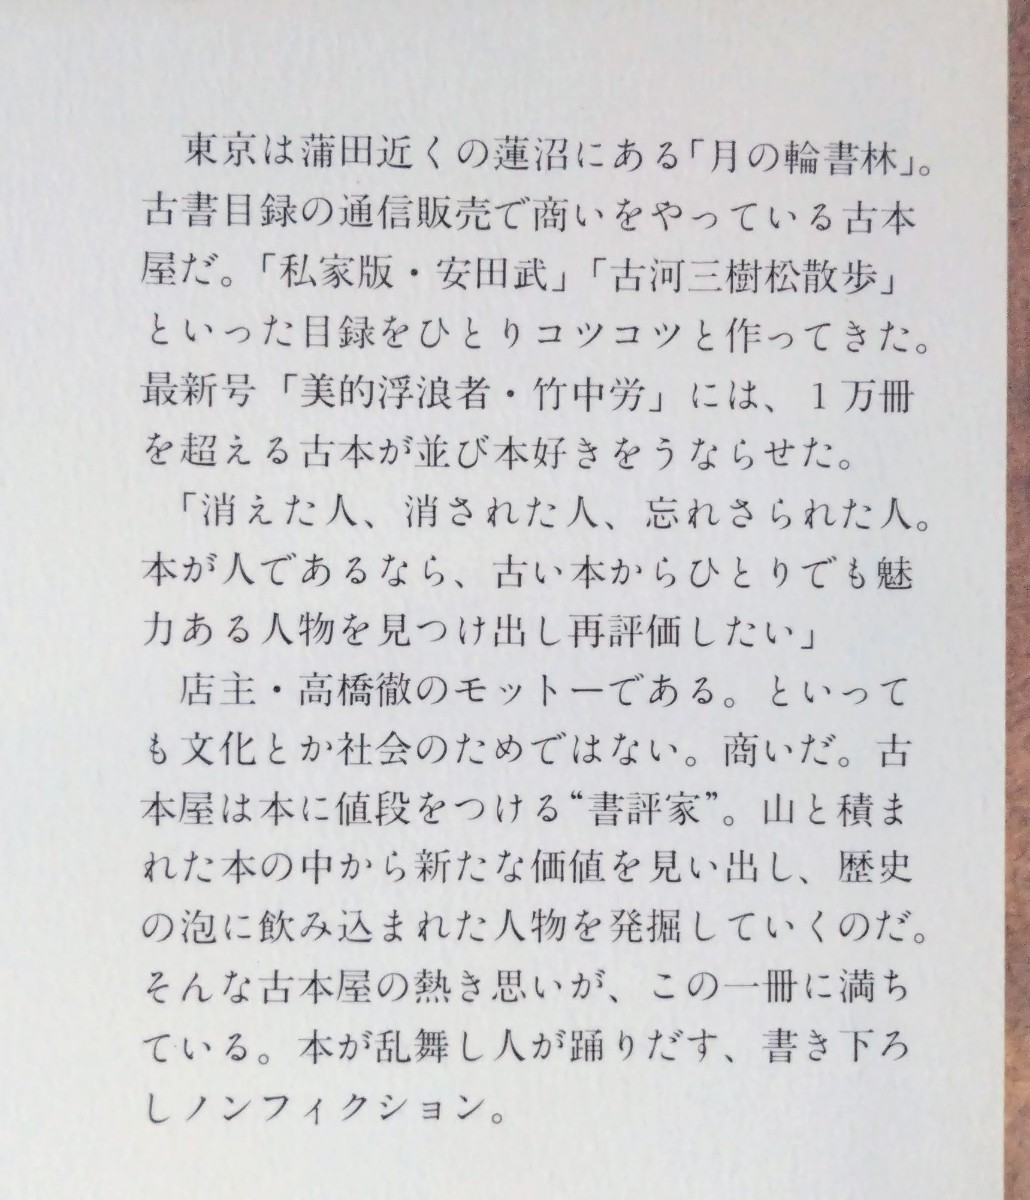 東京は蒲田近くの蓮沼にある「月の輪書林」。
古書目録の通信販売で商いをやっている古本
屋だ。「私家版・安田武」「古河三樹松散歩」
といった目録をひとりコツコツと作ってきた。
最新号「美的浮浪者・竹中労」には、1万冊
を超える古本が並び本好きをうならせた。
「消えた人、消された人、忘れさられた人。
本が人であるなら、古い本からひとりでも魅
力ある人物を見つけ出し再評価したい」
店主・高橋徹のモットーである。といって
も文化とか社会のためではない。商いだ。古
本屋は本に値段をつける“書評家”。山と積ま
れた本の中から新たな価値を見い出し、歴史
の泡に飲み込まれた人物を発掘していくのだ。
そんな古本屋の熱き思いが、この一冊に満ち
ている。本が乱舞し人が踊りだす、書き下ろ
しノンフィクション。